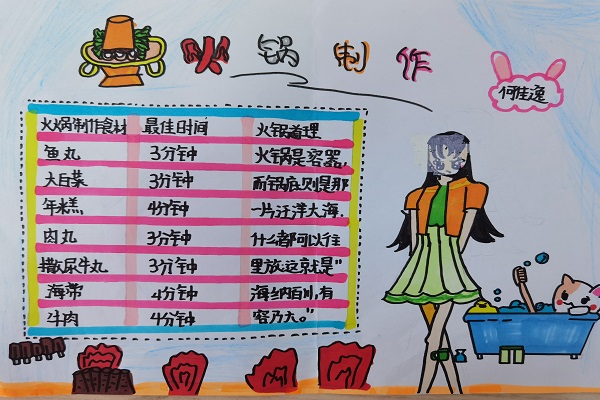 火锅制作
何佳逸
火锅制作食材 最佳时间 火锅道理
鱼丸 3分钟 火锅是容器，
大白菜 3分钟 而锅底则是那
年糕 4分钟 一片汪洋大海，
肉丸 3分钟 什么都可以往
撒尿牛丸 3分钟 里放这就是"
海带 4分钟 海纳百川，有
牛肉 4分钟 容乃大。"